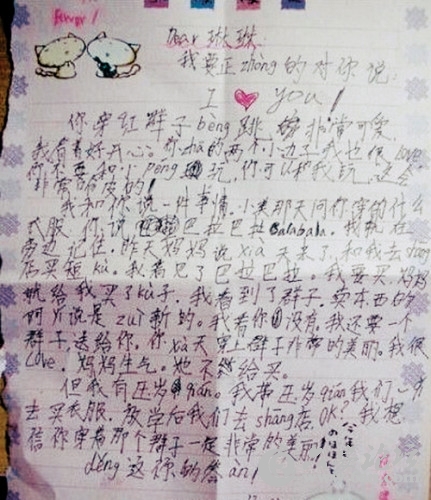 Forever!
Dear 琳琳:
我要正zhong的对你说:
I ♥ you!
你穿红群子bèng跳,非常可爱,
我看着好开心。你zhā的两个小边子我也很love
你不要和小péng玩,你可以和我玩,这会
非常哈皮的!
我和你说一件事情。小美那天问你穿的什么
衣服,你说巴拉巴拉balabala。我就在
旁边记住,昨天妈妈说xià天来了,和我去shāng
店买短kù。我看见了巴拉巴拉。我要买,妈妈
就给我买了kù子,我看到了群子,卖东西的
阿片说是zuì新的。我看你没有,我还要一个
群子,送给你,你xià天穿上群子非常的美丽。我很
love,妈妈生气。她不给买。
但我有压岁qián。我带压岁qián我们
去买衣服,放学后我们去shang店,OK?我想
信你穿着那个群子一定非常的美丽!
děng这你的答àn!